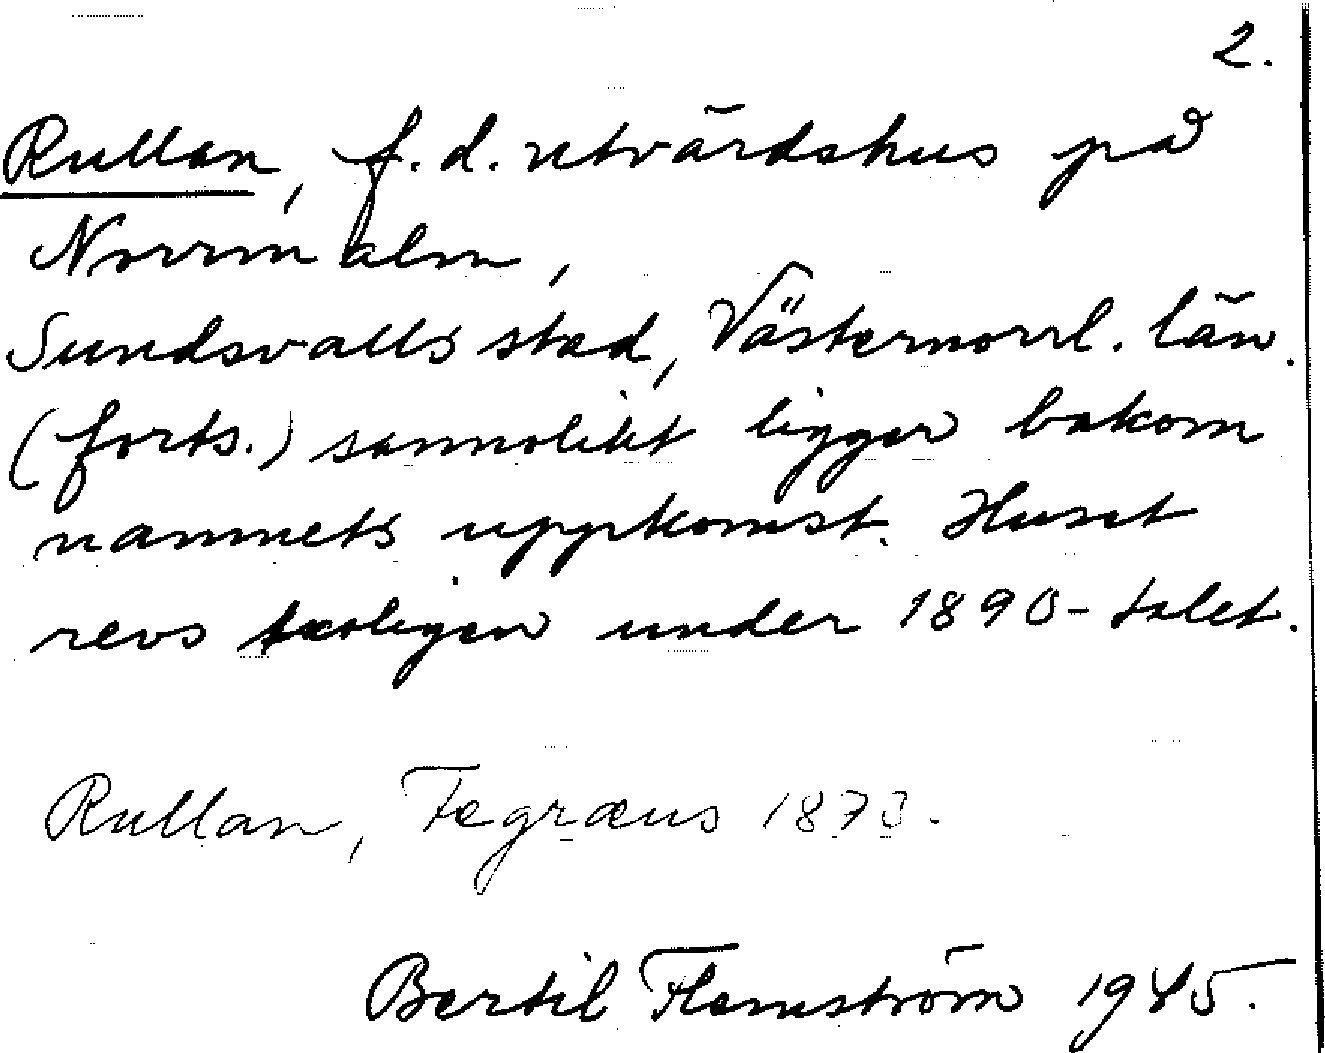 2.
Rullan, f.d. utvärdshus på
Norrmalm,
Sundsvalls stad, Västernorrl. län.
(forts.) sannolikt ligger bakom
namnets uppkomst. Huset
revs troligen under 1890-talet.
Rullan, Fegræus 1873.
Bertil Flemström 1945.